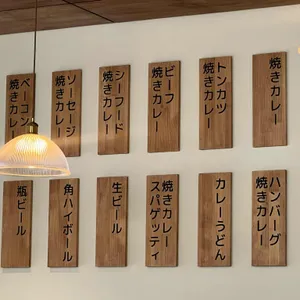 焼きカレー
トンカツ
焼きカレー
ビーフ
焼きカレー
シーフード
焼きカレー
ソーセージ
焼きカレー
ベーコン
焼きカレー
ハンバーグ
焼きカレー
カレーうどん
焼きカレー
スパゲッティ
生ビール
角ハイボール
瓶ビール